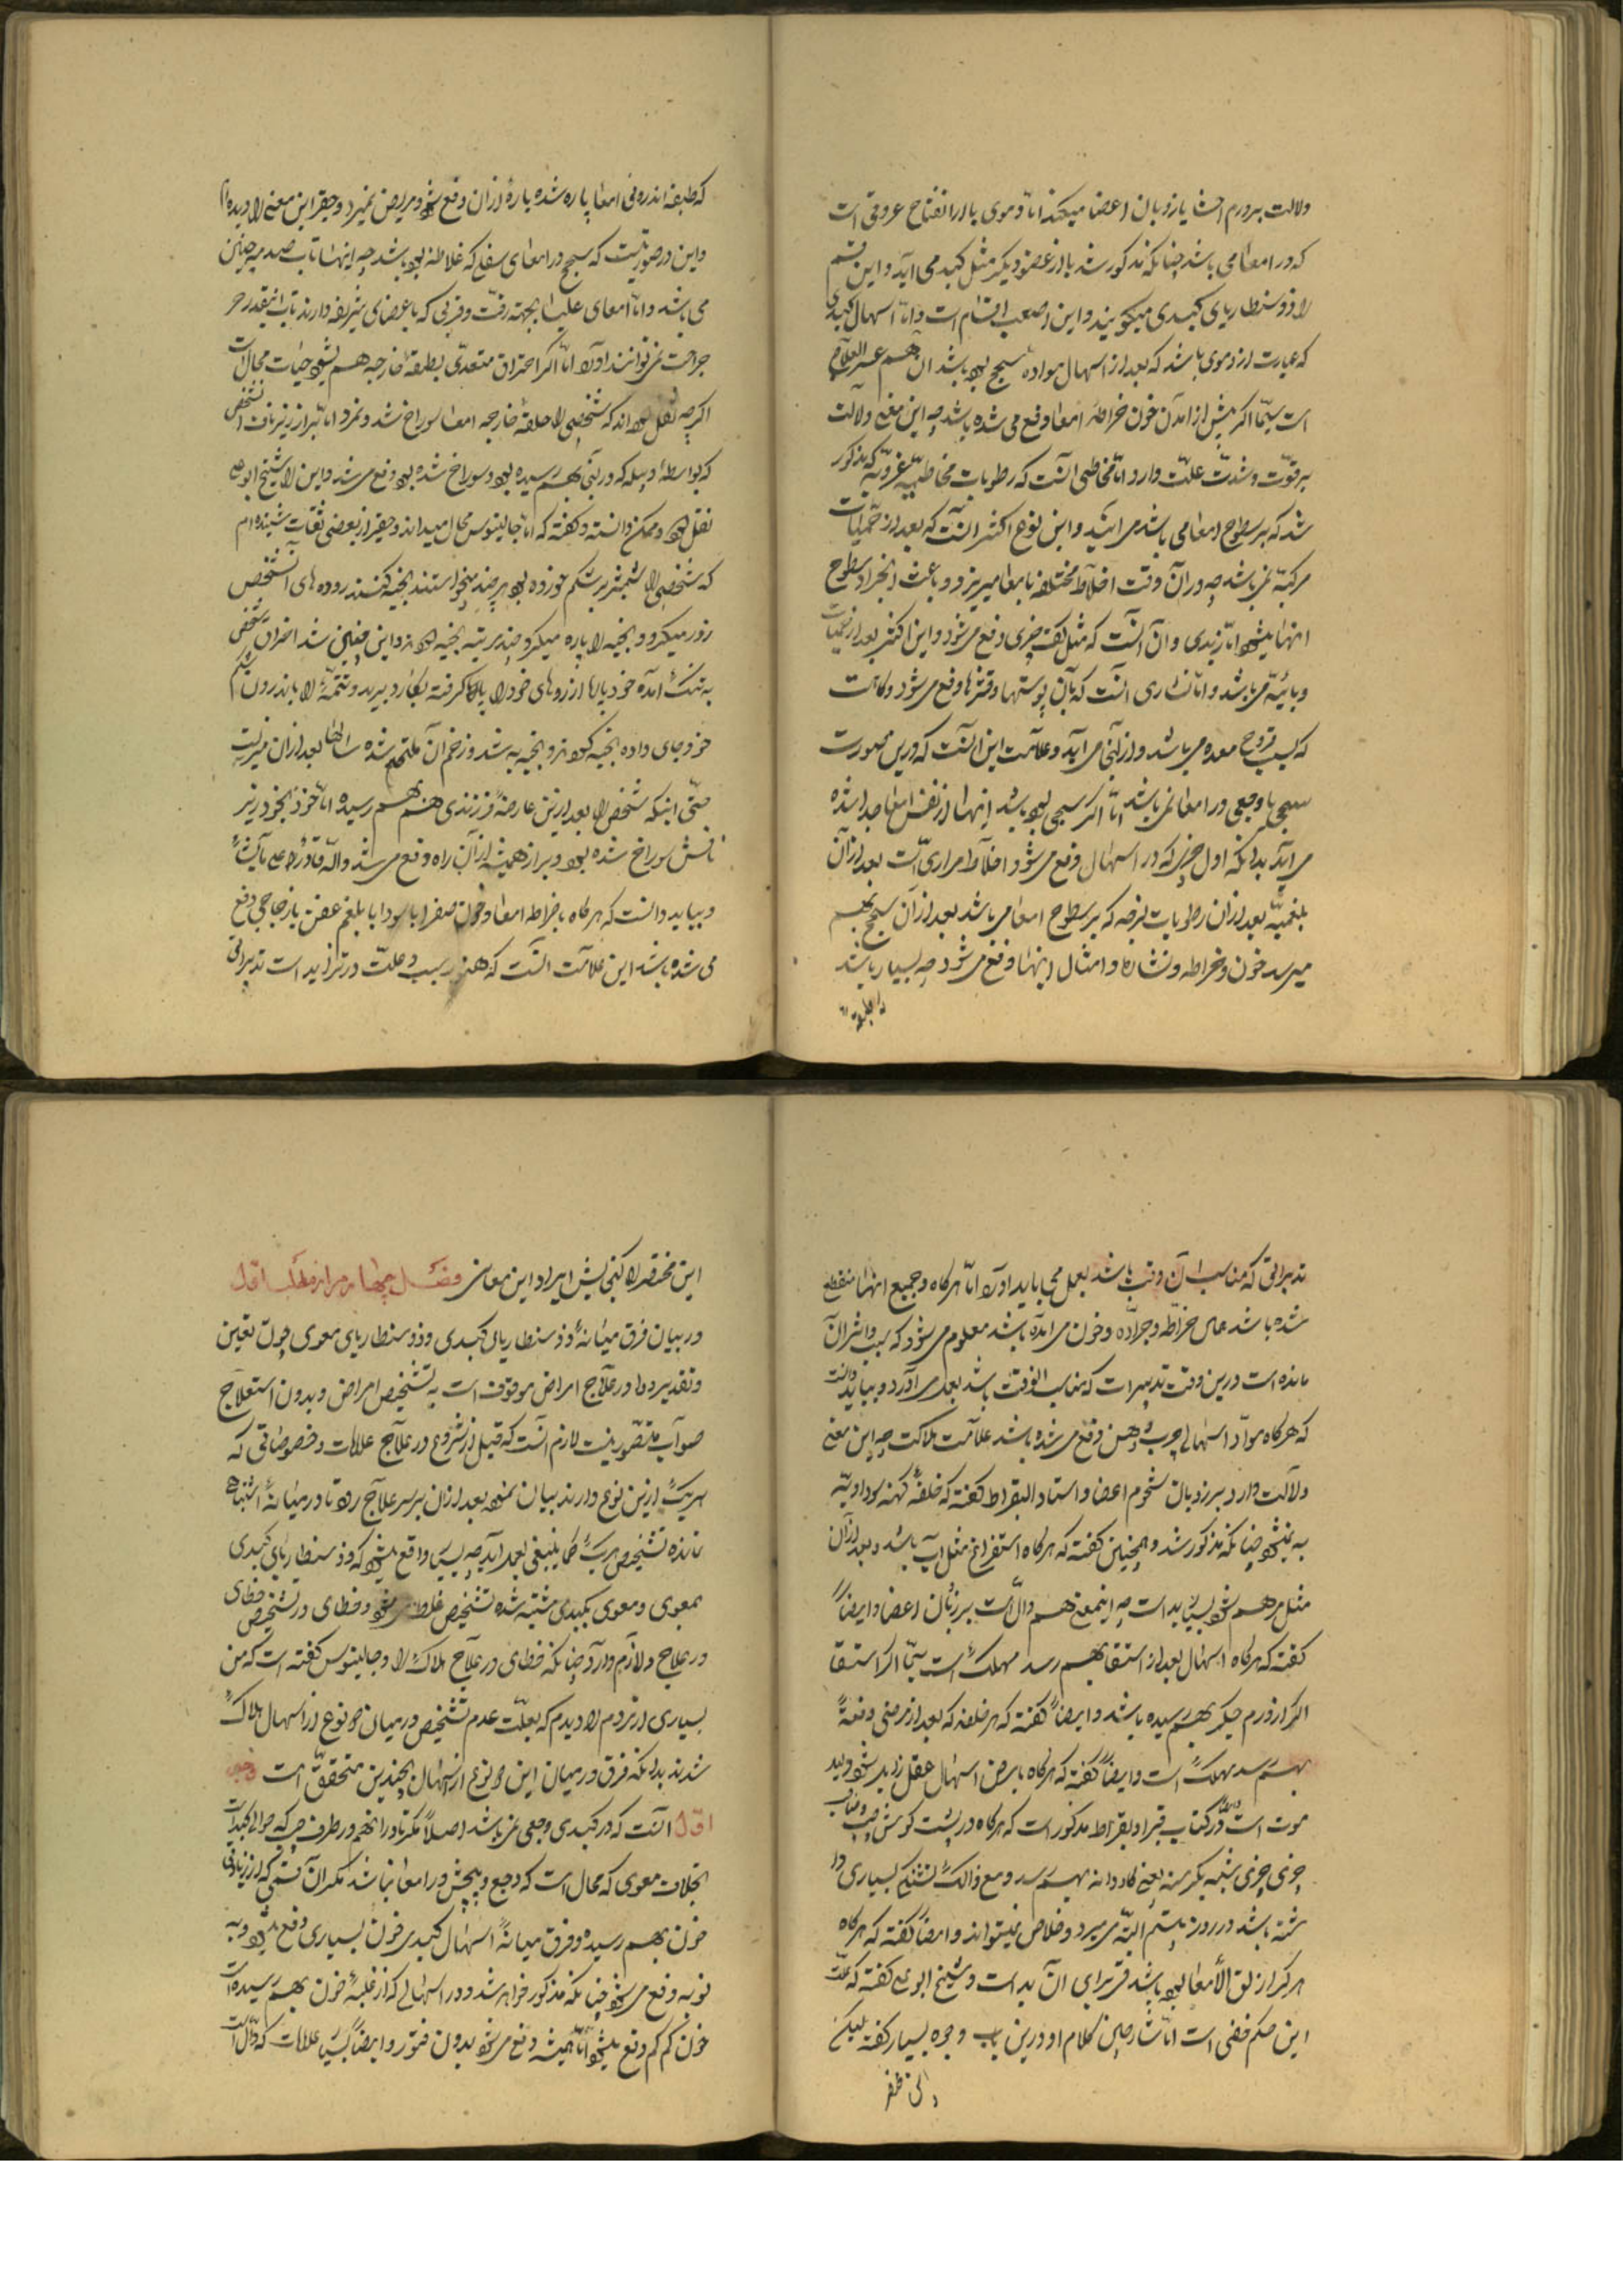 دلالت بر ورم احشا یا ذوبان اعضا میکند اما دموی یا از انفتاح عروقی است
که در امعا می باشد چنانکه مذکور شد یا از عضو دیگر مثل کبد می آید و این قسم
را ذوسنطاریای کبدی میگویند و این اصعب اقسام است و اما اسهال کبدی
که عبارت از دموی باشد که بعد از اسهال مواده سحج بوده باشد آن هم عسر العلاج
است سیما اگر پیش از آمدن خون خراطهٔ امعا دفع می شده باشد چه این معنی دلالت
بر قوت و شدت علت دارد اما مخاطی آنست که رطوبات مخاطیه غرویه که مذکور
شد که بر سطوح امعا می باشد می آید و این نوع اکثر آنست که بعد از حمیات
مرکبه می باشد چه در آن وقت اخلاط مختلفه بامعا میریزد و باعث انجراد سطوح
اینها میشود اما زبدی و آن آنست که مثل کف چیزی دفع می شود و این اکثر بعد از حمیات
وبائیه می باشد و اما نشاری آنست که بآن پوستها و قشرها دفع می شود و گاهست
که بسبب قروح معده می باشد و از آنجا می آید و علامت این آنست که درین صورت
سحج یا وجعی در امعا نمی باشد اما اگر سحجی بوده باشد اینها از نفس امعا جدا شده
می آید بدانکه اول چیزی که در اسهال دفع می شود اخلاط مراریست بعد از آن
بلغمیه بعد از آن رطوبات لزجه که بر سطوح امعا می باشد بعد از آن سحج بهم
میرسد خون و خراطه و نشاره و امثال اینها دفع می شود چه بسیار باشد
که طبقه
که طبقه اندرونی امعا پاره شده پارهٔ از آن دفع شود و مریض نمیرد و حقیر این معنی را دیده ام
و این در صورتیست که سحج در امعای سفلی که غلاظند بوده باشد چه اینها تاب صدمه چنین
می باشد و اما امعای علیا بجهة رقت و قربی که باعضای شریفه دارند تاب اینقدر حر
جراحت نمی توانند آورد اما اگر احتراق متعدی بطبقهٔ خارجه هم بشود حیات محال است
اگرچه نقل کرده اند که شخصی را حلقهٔ خارجه امعا سوراخ شد و نمرد اما براز از زیر ناف آن شخص
که بواسطهٔ دبیله که در آنجا بهم رسیده بود و سوراخ شده بود دفع می شد و این را شیخ ابو علی
نقل کرده و ممکن دانسته و گفته که اما جالینوس محال میداند و حقیر از بعضی ثقات شنیده ام
که شخصی را شمشیر بر شکم خورده بود هر چند میخواستند بخیه کنند روده های آن شخص
زور میکرد و بخیه را پاره میکرد چند مرتبه بخیه کردند و این چنین شد آخر آن شخص
به تنگ آمده خود پارهٔ از روده های خود را گرفته بکارد برید و تتمه را باندرون شکم
خود جای داده بخیه کردند و بخیه به شد و زخم آن ملتحم شده سالها بعد از آن میزیست
حتی اینکه شخص را بعد از این عارضه فرزندی هم بهم رسیده اما خود بخود زیر
نافش سوراخ شده بود و براز همیشه از آن راه دفع می شد واللّه قادر علی ما یشاء
و بباید دانست که هر گاه با خراطه امعا و خون صفرا یا سودا یا بلغم عفن یا زجاجی دفع
می شده باشد این علامت آنست که هنوز سبب و علت در تزاید است تدبیراتی
تدبیراتی که مناسب آن وقت باشد بعمل می باید آورد اما هر گاه جمیع اینها منقطع
شده باشد همان خراطه و جراده و خون می آمده باشد معلوم می شود که سبب و اثر آن
مانده است درین وقت تدبیرات که مناسب الوقت باشد بعمل می آورد و بباید دانست
که هر گاه مواد اسهالی چرب و دهن دفع می شده باشد علامت هلاکت چه این معنی
دلالت دارد بر ذوبان شحوم اعضا و استاد البقراط گفته که خلفهٔ کهنه سوداویه
به نمیشود چنانکه مذکور شد و همچنین گفته که هر گاه استفراغ مثل آب باشد و بعد از آن
مثل مرهم شود بسیار بد است چه اینمعنی هم دال است بر ذوبان اعضا و ایضاً
گفته که هر گاه اسهال بعد از استسقا بهم رسد مهلک است سیما اگر استسقا
اگر از ورم جگر بهم رسیده باشد و ایضاً گفته که هر خلفه که بعد از مرضی دفعةً
بهم رسد مهلک است و ایضاً گفته که هر گاه با مرض اسهال عقل زایل شود دلیل
موت است و در کتاب قبراد بقراط مذکور است که هر گاه در پشت گوش چپ صاحب
چیزی چیزی شبیه بکرسنه یعنی گاودانه بهم رسد و مع ذالک تشنگی بسیاری دا
شته باشد در روز بیستم البته می میرد و خلاص نمیتواند و ایضاً گفته که هر گاه
هر که را زلق الأمعا بوده باشد قی برای آن بد است و شیخ ابو علی گفته که علت
این حکم خفی است اما شارحین کلام او درین باب وجوه بسیار گفته لیکن
این مختصر
این مختصر را گنجایش ایراد این معانی فصل چهارم از مطلب اول
در بیان فرق میانهٔ ذوسنطاریای کبدی و ذوسنطاریای معوی چون تعیین
و تقدیر دوا در علاج امراض موقوفست به تشخیص امراض و بدون استعلاج
صواب متصور نیست لازم آنست که قبل از شروع در علاج علامات و خصوصیاتی که
هر یک ازین نوع دارند بیان نموده بعد از آن بر سر علاج رود تا در میانهٔ اشتباه
نمانده تشخیص هر یک کما ینبغی بعمل آید چه بسیار واقع میشود که ذوسنطاریای کبدی
بمعوی و معوی بکبدی مشتبه شده تشخیص غلط می شود و خطای در تشخیص خطای
در علاج را لازم دارد چنانکه خطای در علاج هلاک را و جالینوس گفته است که من
بسیاری از مردم را دیدم که بعلت عدم تشخیص در میان دو نوع از اسهال هلاک
شدند بدانکه فرق در میان این دو نوع از اسهال بچندین متحقق است وجه
اول آنست که در کبدی وجعی نمی باشد اصلاً مگر نادرا آنهم در طرف جگر که حوالی کبد است
بخلاف معوی که محال است که وجع و پیچش در امعا نباشد مگر آن قسمی که از زیادتی
خون بهم رسیده و فرق میانهٔ اسهال کبدی خون بسیاری دفع میشود و به
نوبه دفع می شود چنانکه مذکور خواهد شد و در اسهالی که از غلبهٔ خون بهم رسیده است
خون کم کم دفع میشود اما همیشه دفع می شود بدون فتور و ایضاً بسیار علامات که دال است